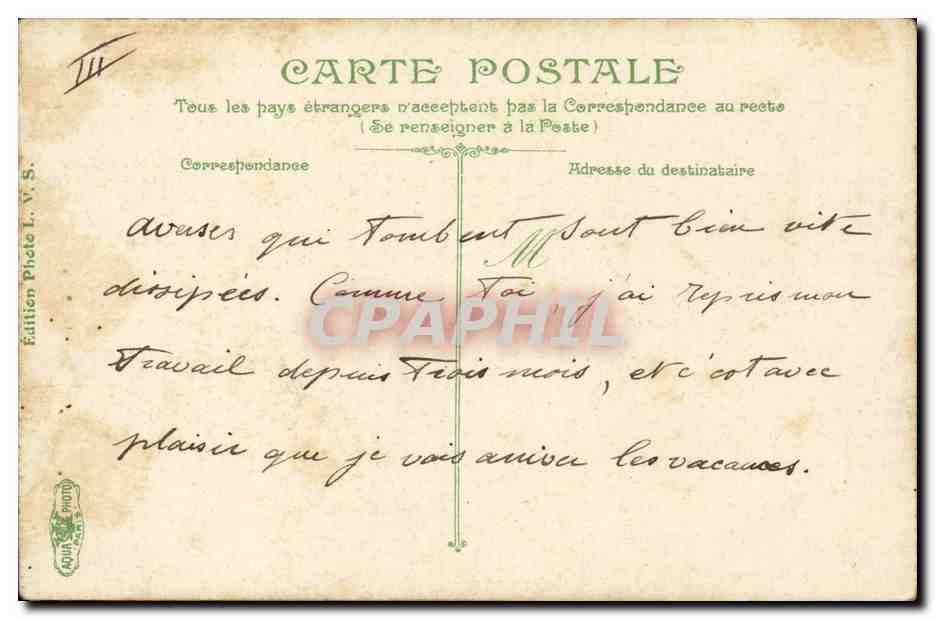 III
CARTE POSTALE
Tous les pays étrangers n'acceptent pas la Correspondance au recto
(Se renseigner à la Poste)
Correspondance
Adresse du destinataire
Édition Photo L. V. S.
M
averses qui tombent sont bien vite
dissipées. Comme toi, j'ai repris mon
travail depuis trois mois, et c'est avec
plaisir que je vois arriver les vacances.
CPAPHIL
AQUA PHOTO
PARIS